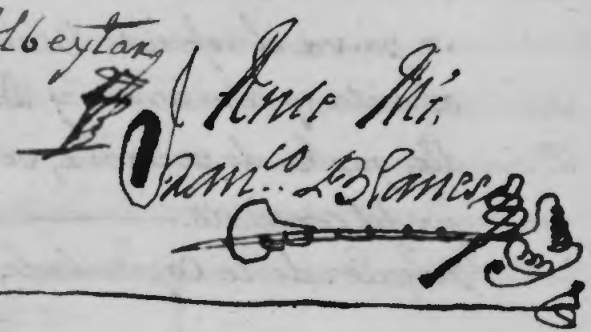 Albeytar
Ante Mí.
Fran.co Blanes